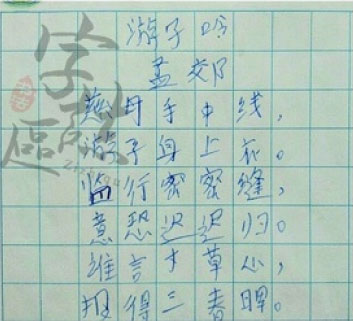 游子吟
孟郊
慈母手中线，
游子身上衣。
临行密密缝，
意恐迟迟归。
谁言寸草心，
报得三春晖。